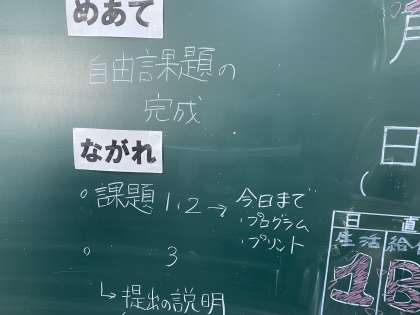 めあて
自由課題の
完成
ながれ
○課題 1、2 → 今日まで
・プログラム
・プリント
○ 3
↳提出の説明
日直
生活 給